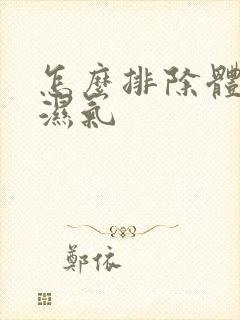 怎麼排除體
濕氣
鄭依